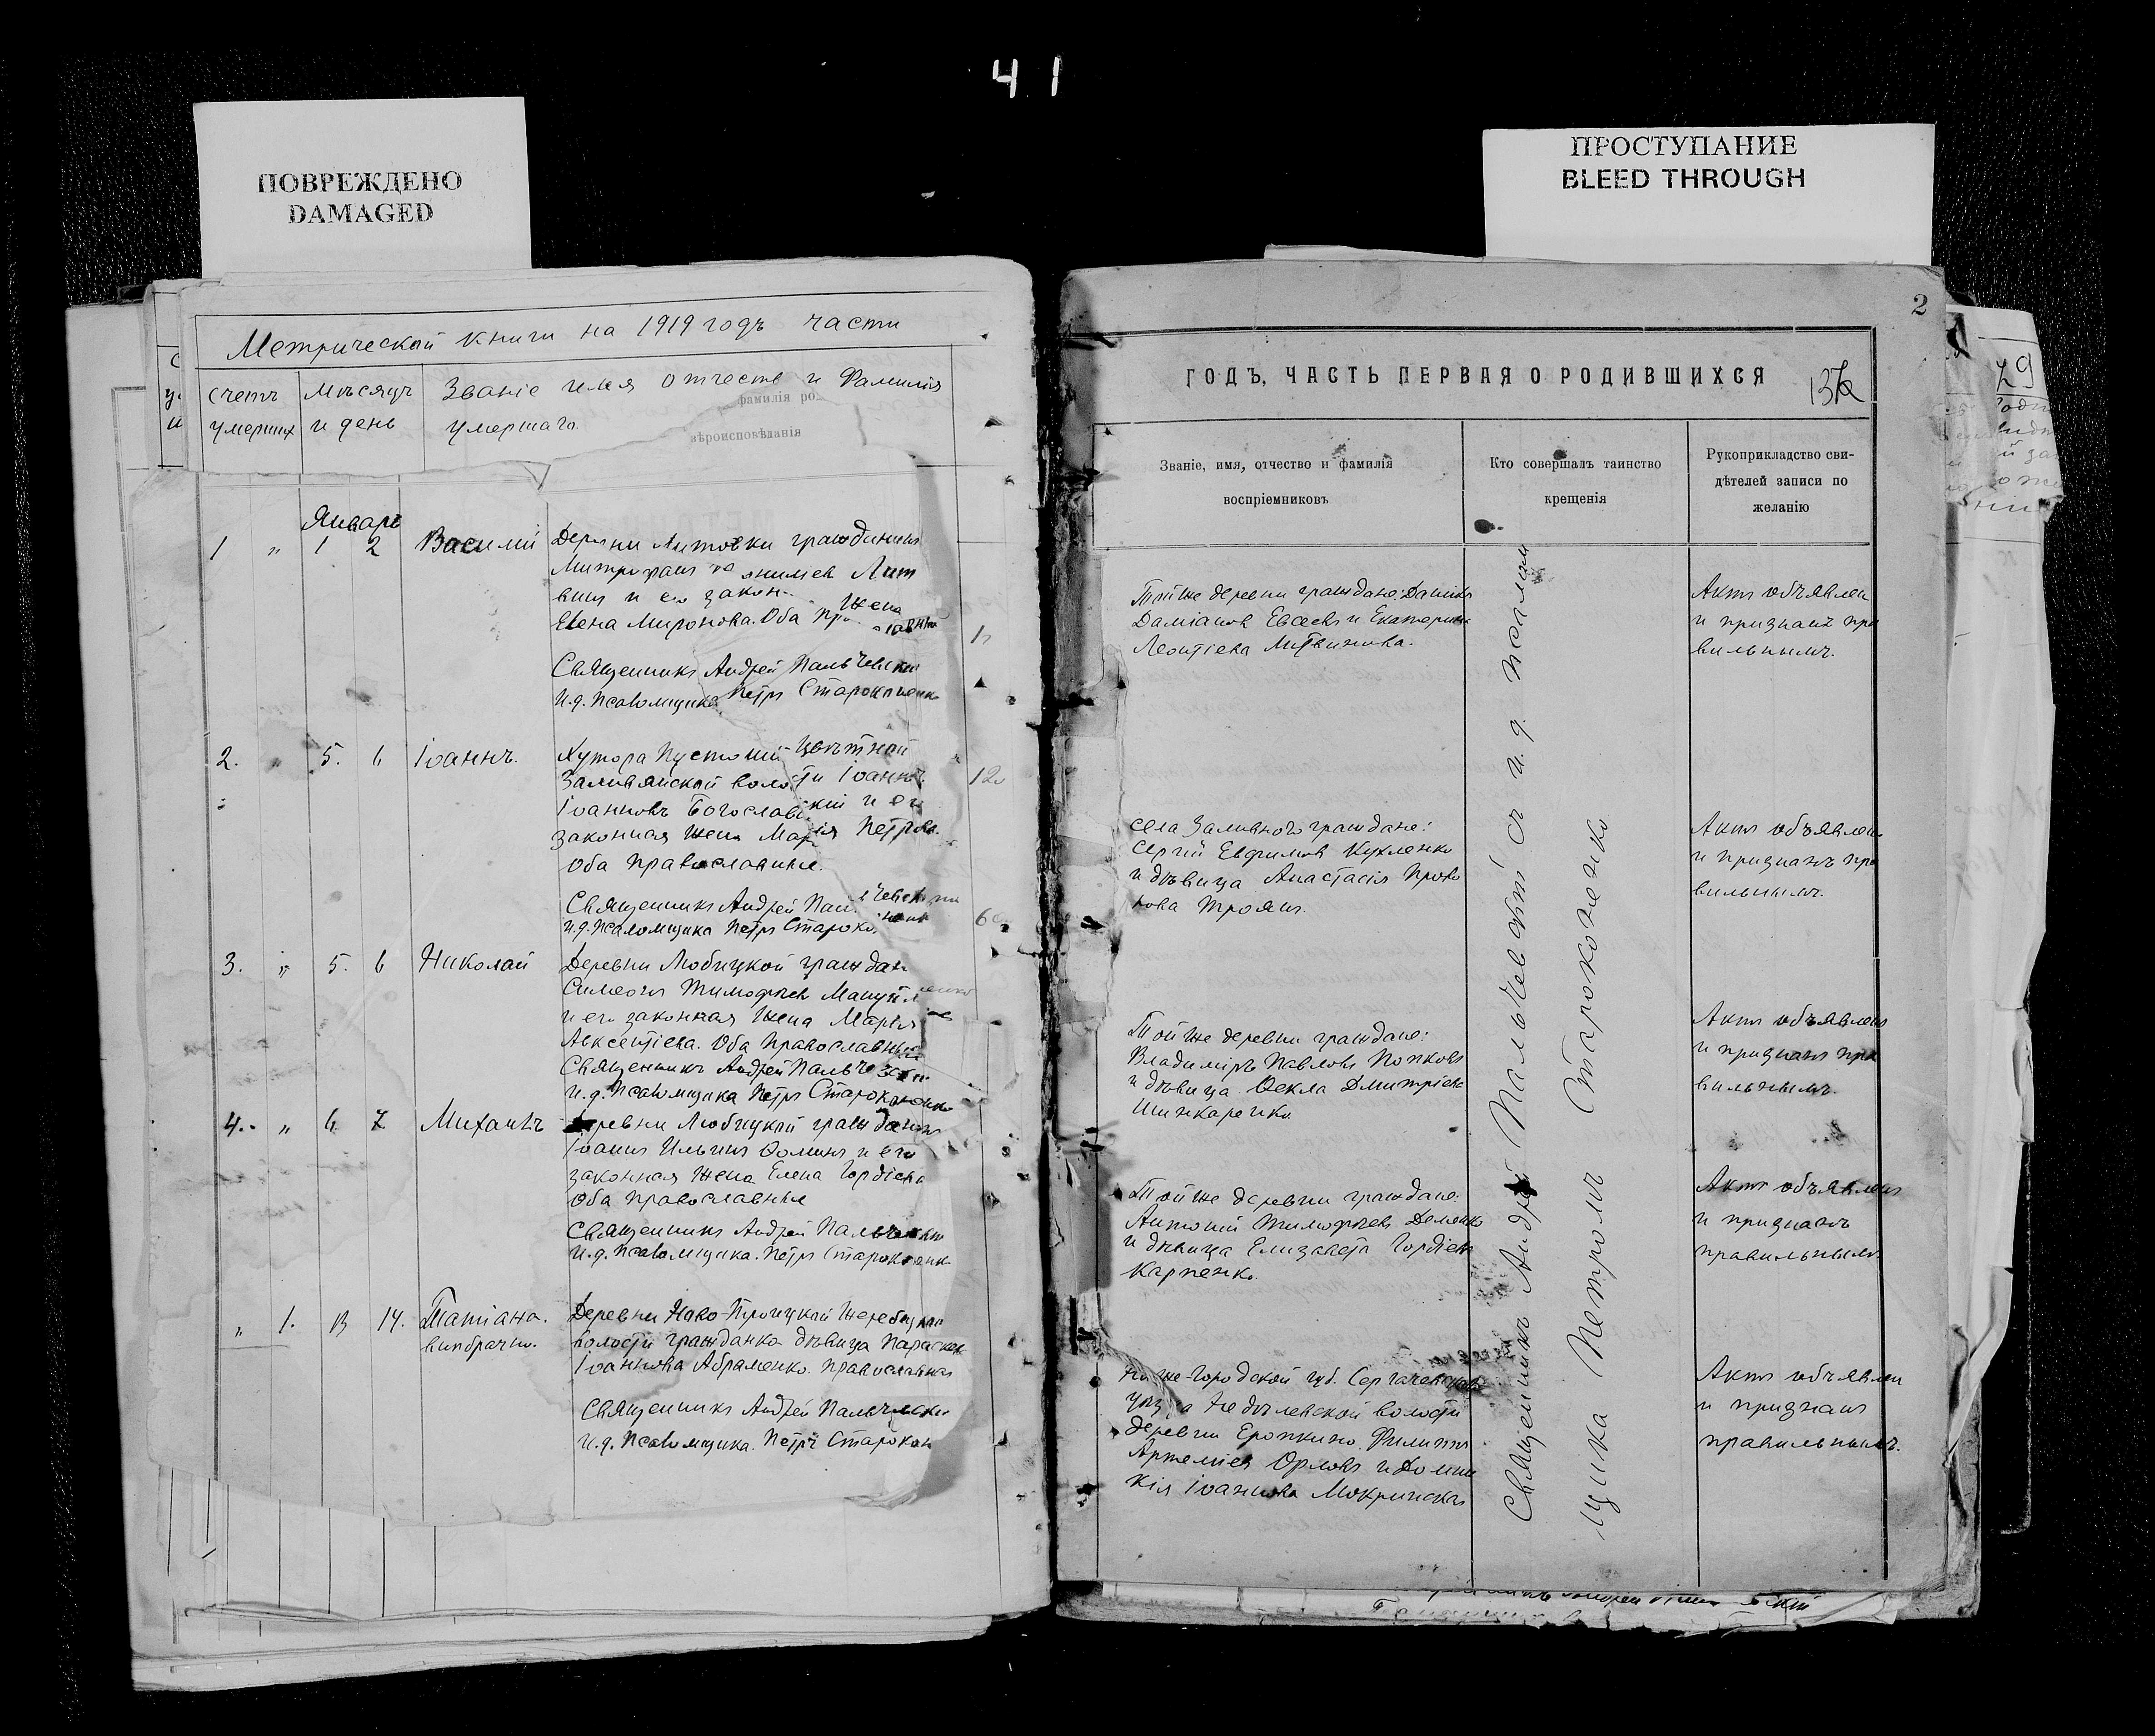 41
ПОВРЕЖДЕНО
DAMAGED
ПРОСТУПАНИЕ
BLEED THROUGH
Метрической книги на 1919 годъ части
счетъ умершихъ
Мѣсяцъ и день
Званіе имя отчество и Фамилія
умершаго.
фамилія ро
вѣроисповѣданія
Январь
1 " 1 2 Василій
Деревни Литовки гражданинъ
Митрофанъ
и его закон. жена
Елена Миронова. Оба
Священникъ Андрей Пальчевскій
И.д. Псаломщика Петръ Староконенко
2. " 5. 6 Іоаннъ.
Хутора Пустоши Цвѣтной
Заливянской волости Іоаннъ
Іоанновъ Богославскій и его
законная жена Марія Петрова.
Оба православные.
Священникъ Андрей Пальчевскій
И.д. Псаломщика Петръ Староконенко
3. " 5. 6 Николай
Деревни Любицкой граждан
Симеонъ Тимофѣевъ Мануйленко
и его законная жена Марія
Авксентіева. Оба Православные
Священникъ Андрей Пальчевскій
И.д. Псаломщика Петръ Староконенко
4. " 6 7 Михаилъ
Деревни Любицкой гражданинъ
Іоаннъ Ильинъ Ѳоминъ и его
законная жена Елена Гордіева
Оба православные
Священникъ Андрей Пальчевскій
И.д. Псаломщика. Петръ Староконенко
" 1. 13 14. Татіана.
внѣбрачно.
Деревни Ново-Троицкой
волости гражданка дѣвица Параскева
Іоаннова Абраменко. православная
Священникъ Андрей Пальчевскій
И.д. Псаломщика. Петръ Старокон
2
ГОДЪ, ЧАСТЬ ПЕРВАЯ О РОДИВШИХСЯ
Званіе, имя, отчество и фамилія
воспріемниковъ
Кто совершалъ таинство
крещенія
Рукоприкладство сви-
дѣтелей записи по
желанію
Той же деревни граждане: Даніилъ
Даміановъ Евсеевъ и Екатерина
Леонтіева Литвинова.
Актъ объявленъ
и признанъ пра
вильнымъ.
села Заливного граждане:
Сергій Евфимовъ Кухленко
и дѣвица Анастасія Проко
пова Троянъ.
Актъ объявленъ
и признанъ пра
вильнымъ.
Той же деревни граждане:
Владиміръ Павловъ Попковъ
и дѣвица Ѳекла Дмитріева
Шинкаренко
Актъ объявленъ
и признанъ пра
вильнымъ.
Той же деревни граждане:
Антоній Тимофѣевъ Деменко
и дѣвица Елизавета Гордіева
Карпенко.
Актъ объявленъ
и признанъ
правильнымъ.
Ниже-Городской губ. Сергачевскаго
уѣзда волости
деревни Еропкино. Филиппъ
Артеміевъ Орловъ и Домни
кія Іоаннова Мокринская
Актъ объявлен
и признанъ
правильнымъ.
Священникъ Андрей Пальчевскій съ и.д. Псалом
щика Петромъ Староконенко